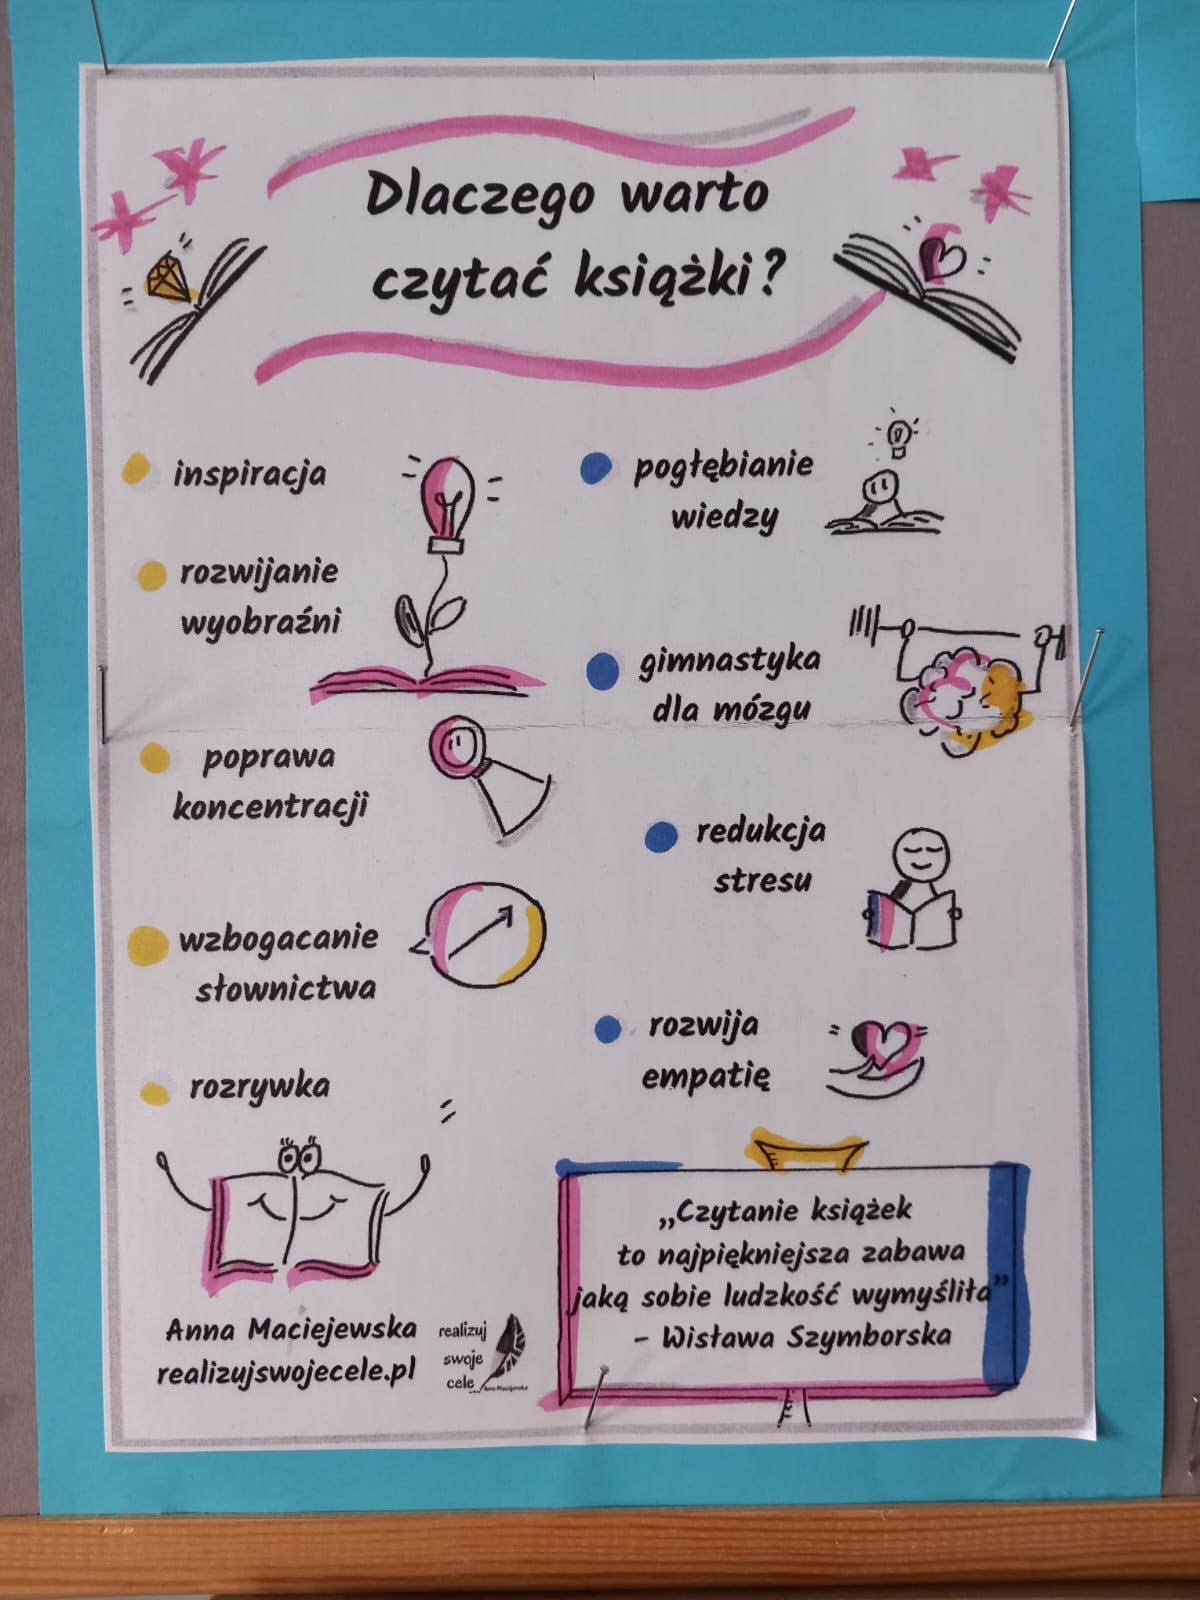 Dlaczego warto
czytać książki?
inspiracja
rozwijanie
wyobraźni
poprawa
koncentracji
wzbogacanie
słownictwa
rozrywka
pogłębianie
wiedzy
gimnastyka
dla mózgu
redukcja
stresu
rozwija
empatię
„Czytanie książek
to najpiękniejsza zabawa
jaką sobie ludzkość wymyśliła”
– Wisława Szymborska
Anna Maciejewska
realizujswojecele.pl
realizuj
swoje
cele
Anna Maciejewska